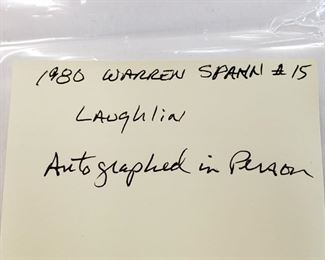 1980 WARREN SPAHN #15
LAUGHLIN
Autographed in Person